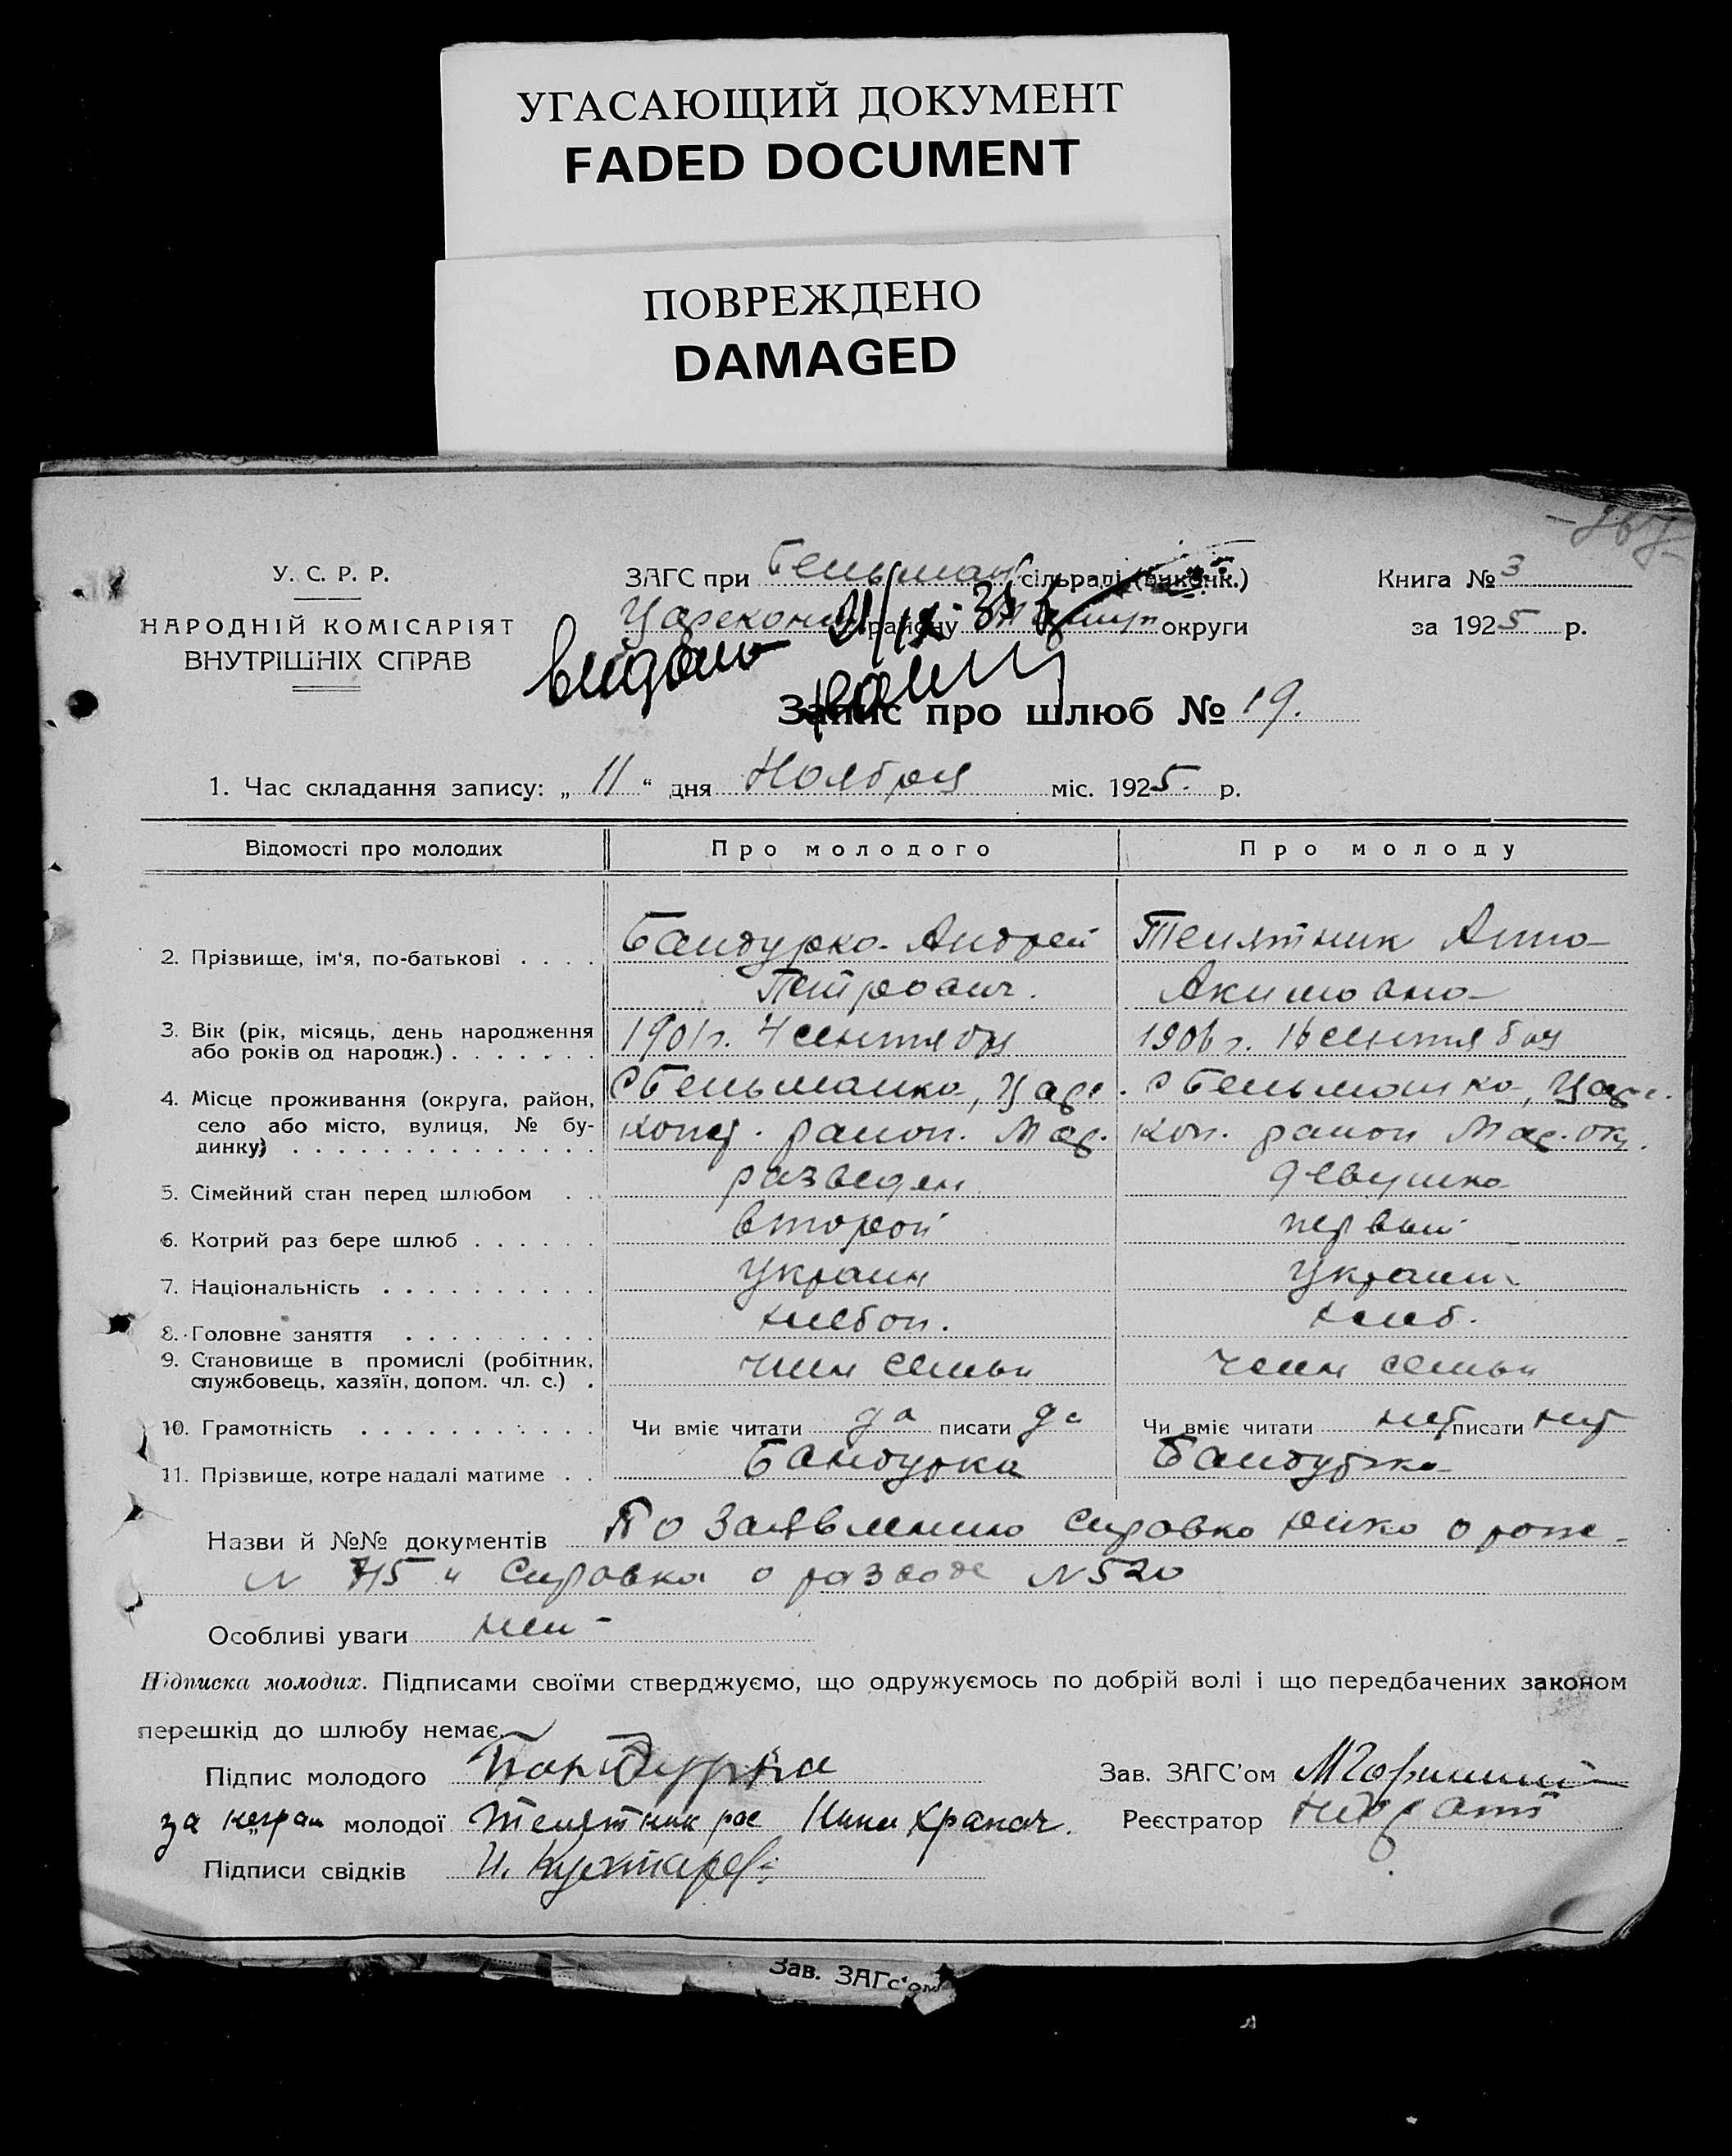 УГАСАЮЩИЙ ДОКУМЕНТ
FADED DOCUMENT
ПОВРЕЖДЕНО
DAMAGED
У. С. Р. Р.
НАРОДНІЙ КОМІСАРІЯТ
ВНУТРІШНІХ СПРАВ
ЗАГС при Бельман сільраді (виконк.)
Цареконст району Мариуп округи
Книга № 3
за 1925 р.
видано
Запис про шлюб № 19.
1. Час складання запису: „ 11 “ дня Ноября міс. 1925. р.
Відомості про молодих Про молодого Про молоду
2. Прізвище, ім‘я, по-батькові . . . . Бандурка Андрей Телятник Анна
Петрович. Акимовна
3. Вік (рік, місяць, день народження 1901 г. 4 сентября 1906 г. 16 сентября
або років од народж.) . . . . . . .
4. Місце проживання (округа, район, с Бельманка, Царе. с Бельманка, Царе.
село або місто, вулиця, № бу- конст. район. Мар. кон. район Мар. окр.
динку) . . . . . . . . . . . . . .
5. Сімейний стан перед шлюбом . . разведен девушка
6. Котрий раз бере шлюб . . . . . . второй первый
7. Національність . . . . . . . . . . Украин Украин
8. Головне заняття . . . . . . . . . хлебоп. хлеб.
9. Становище в промислі (робітник, член семьи член семьи
службовець, хазяїн, допом. чл. с.) .
10. Грамотність . . . . . . . . . . . Чи вміє читати да писати да Чи вміє читати нет писати нет
11. Прізвище, котре надалі матиме . . Бандурка Бандурка
Назви й №№ документів По Заявлению справка о рож-
N 715 и Справка о разводе N 520
Особливі уваги нет -
Підписка молодих. Підписами своїми стверджуємо, що одружуємось по добрій волі і що передбачених законом
перешкід до шлюбу немає.
Підпис молодого Бандурка Зав. ЗАГС'ом
за неграм молодої Телятник рос Реєстратор
Підписи свідків И.
Зав. ЗАГс‘ом